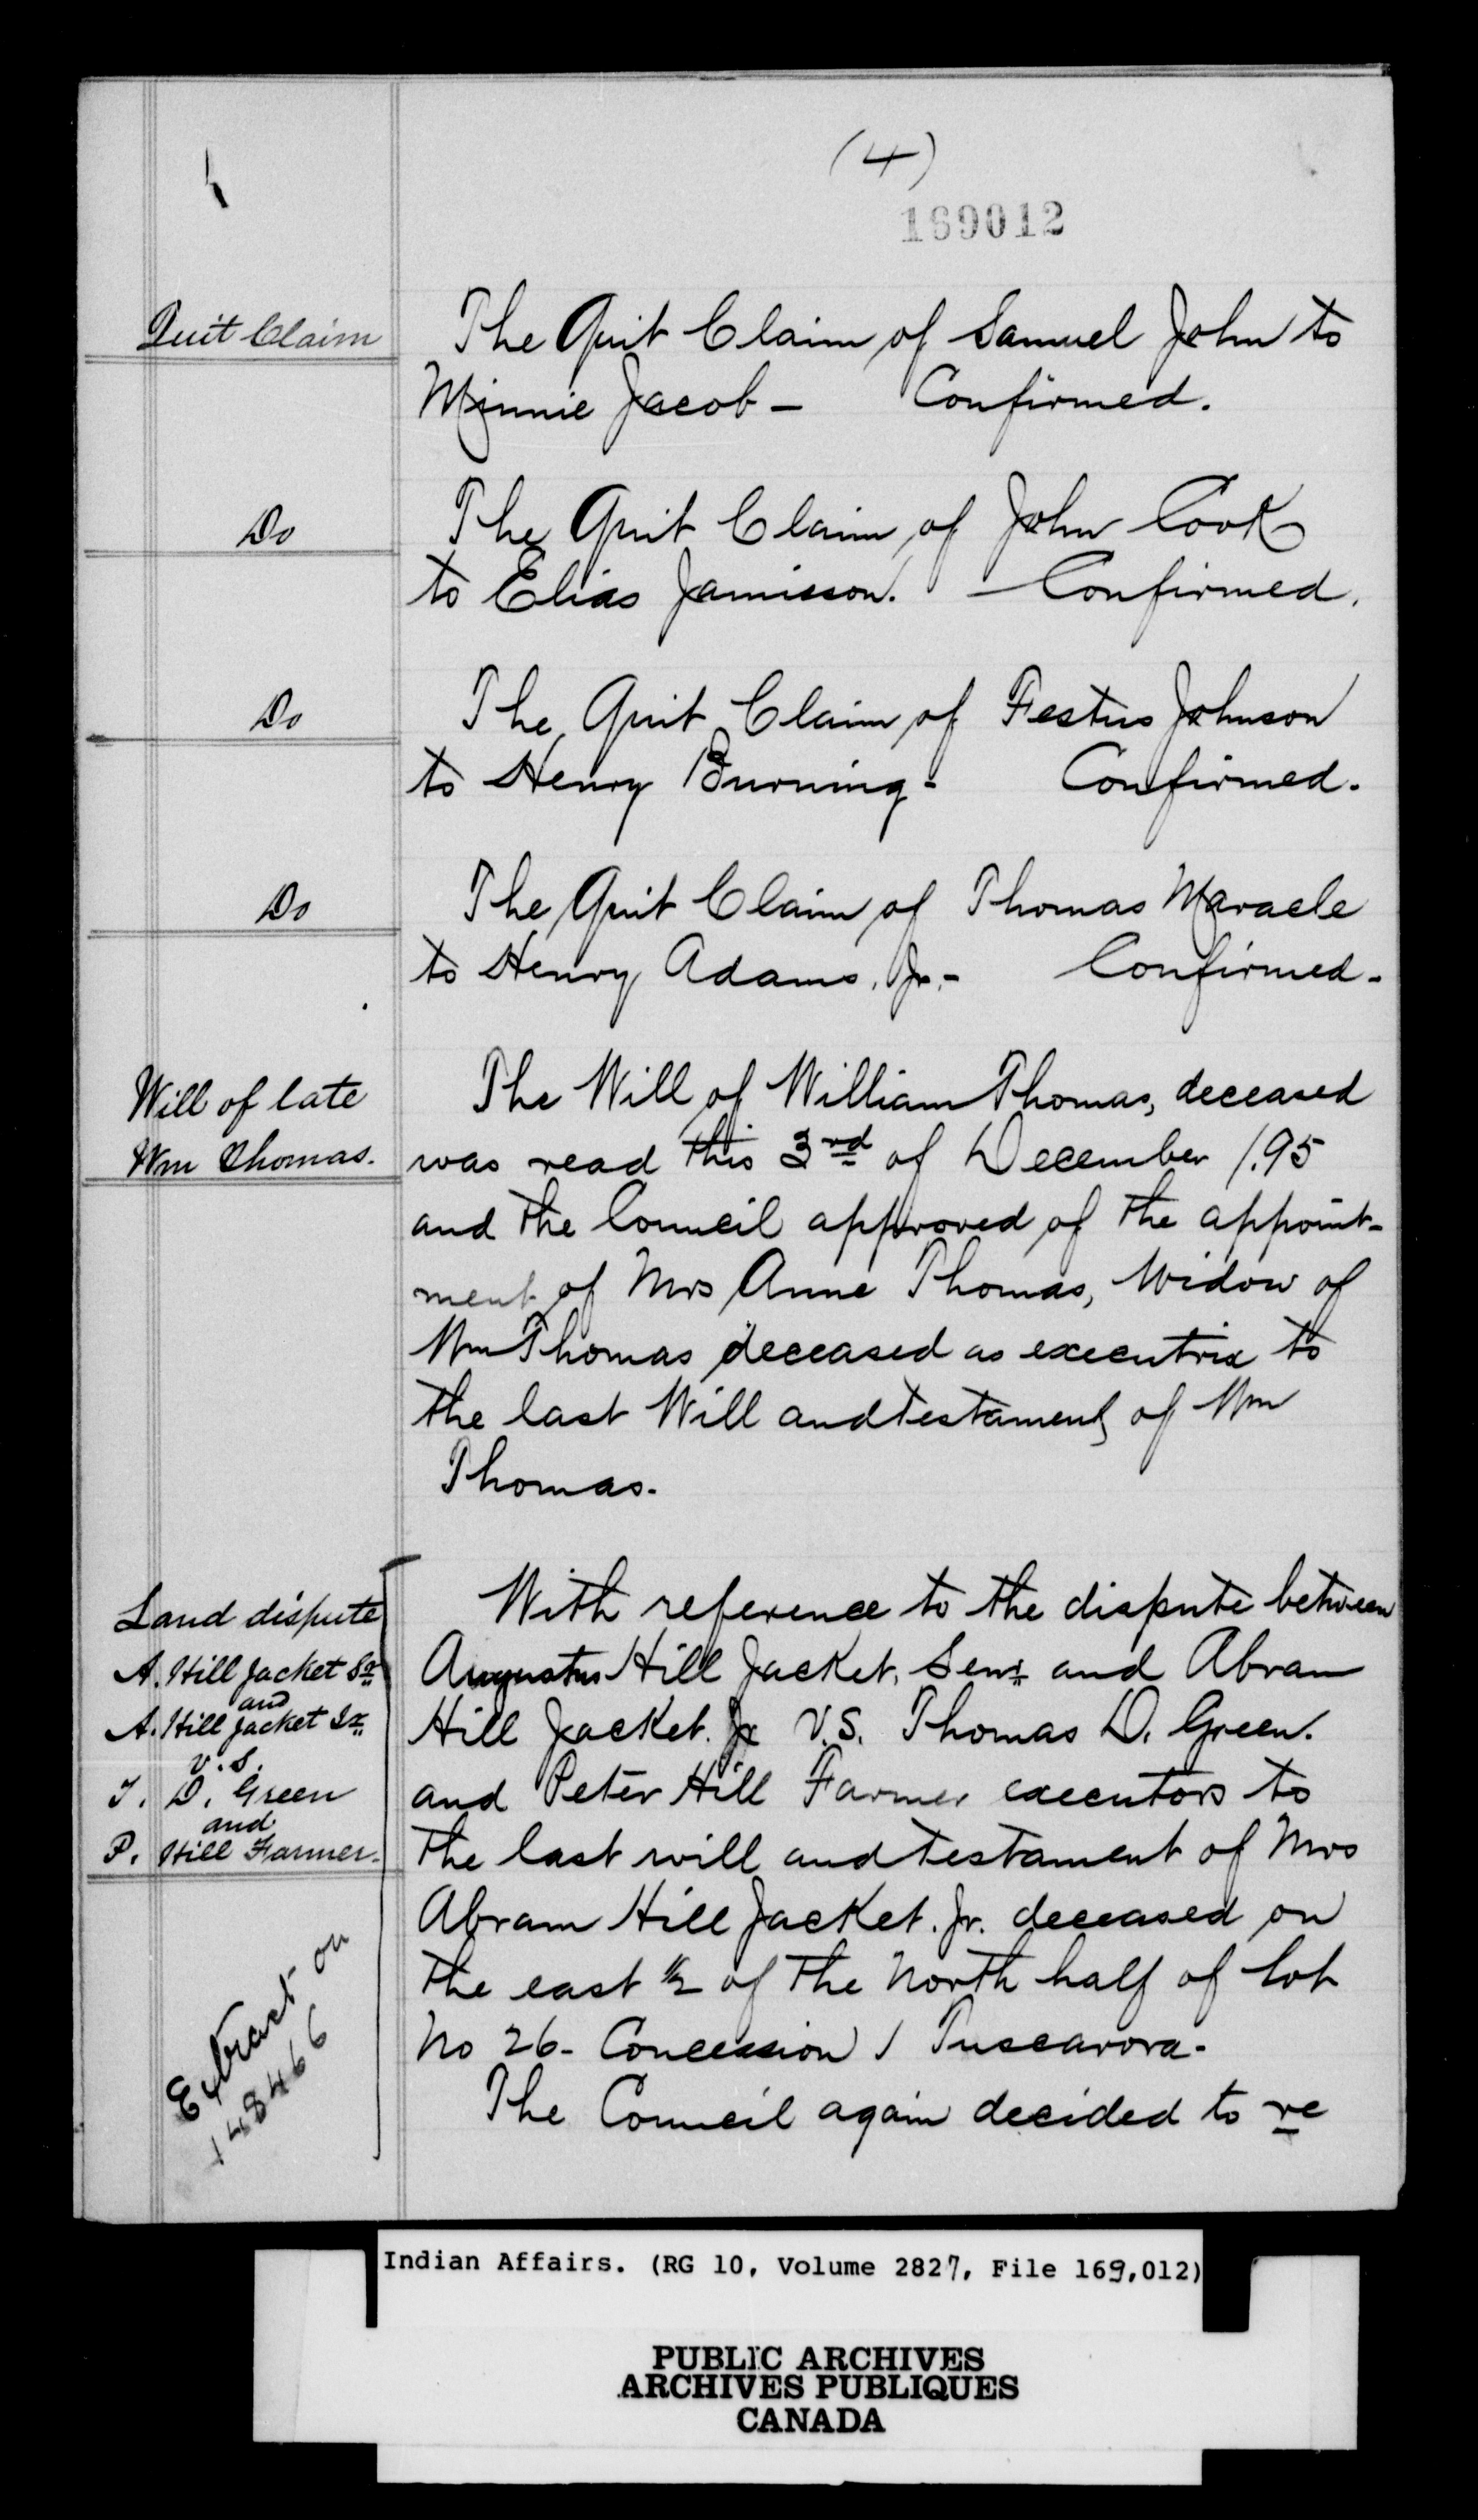 (4)
169012
Quit Claim
The Quit Claim of Samuel John to
Minnie Jacob – Confirmed.
Do
The Quit Claim of John Cook
to Elias Jamieson. – Confirmed.
Do
The Quit Claim of Festus Johnson
to Henry Burning - Confirmed.
Do
The Quit Claim of Thomas Maracle
to Henry Adams. Jr. - Confirmed -
Will of late
Wm Thomas.
The Will of William Thomas, deceased
was read this 3rd of December /.95
and the Council approved of the appoint-
ment of Mrs Anne Thomas, Widow of
Wm Thomas deceased as executrix to
the last Will and testament of Wm
Thomas.
Land dispute
A. Hill Jacket Sr
and
A. Hill Jacket Jr
v.s.
T. D. Green
and
P. Hill Farmer.
With reference to the dispute between
Augustus Hill Jacket. Senr and Abram
Hill Jacket. Jr V.S. Thomas D. Green.
and Peter Hill Farmer executors to
the last will and testament of Mrs
Abram Hill Jacket. Jr. deceased on
the east ½ of the North half of lot
No 26 - Concession 1 Tuscarora -
The Council again decided to re
Extract on
148466
Indian Affairs. (RG 10, Volume 2827, File 169,012)
PUBLIC ARCHIVES
ARCHIVES PUBLIQUES
CANADA